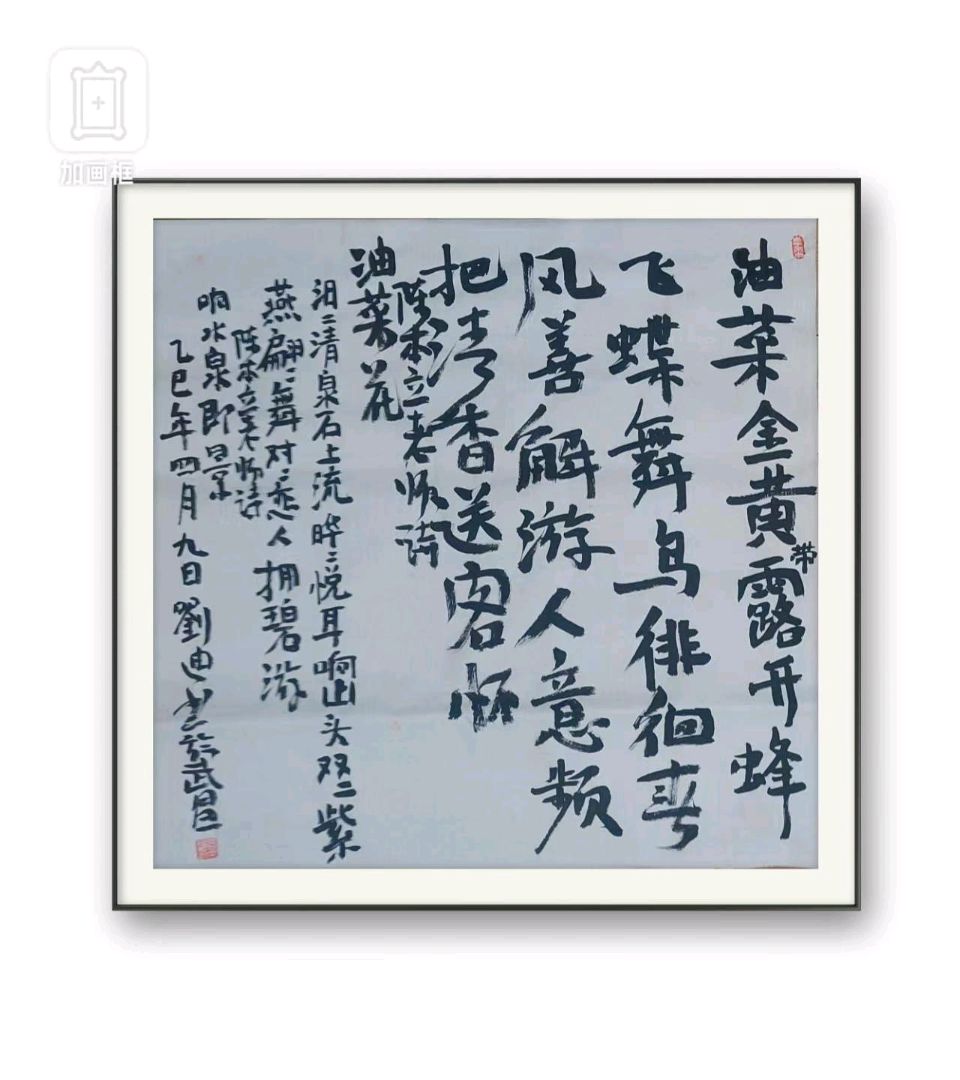 加画框
油菜金黄带露开蜂
飞蝶舞鸟徘徊春
风善解游人意频
把清香送客怀
陈本立老师诗
油菜花
汩〻清泉石上流 〻悦耳响山头双〻紫
燕翩〻舞对〻恋人拥碧游
陈本立老师诗
响水泉即景
乙巳年四月九日劉迪书於武昌